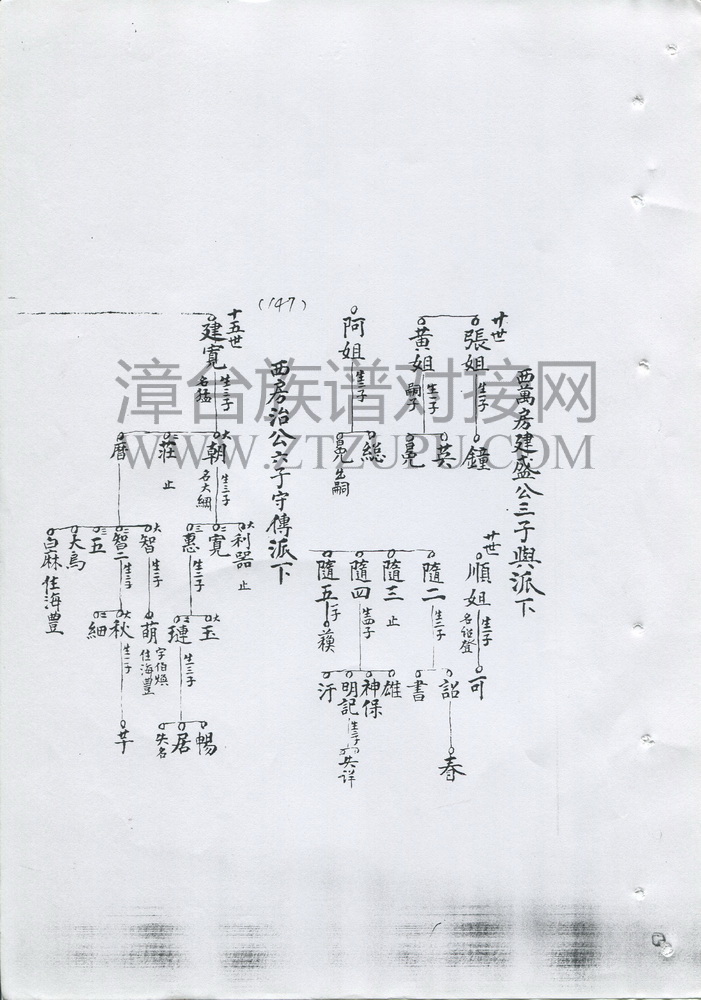 西萬房建盛公三子與派下
廿世
張姐
生一子
鐘
黃姐
生二子
嗣子
英
晃
阿姐
生二子
総
晃
出嗣
廿世
順姐
生一子
可
隨二
生二子
詔
書
春
隨三
止
隨四
生四子
雄
神保
明記
汙
生三子
失详
隨五
一子
(147)
西房治公六子守傳派下
十五世
建寬
名猛
生三子
大
朝
名大細
生三子
莊
止
曆
大
利器
止
二
寬
三
惠
生二子
大
玉
二
璉
生三子
暢
居
失名
大
智
生一子
萌
字伯煥
住海豐
二
智二
生二子
大
秋
二
細
生一子
三
五
大鳥
白麻
住海豐
漳台族谱对接网
WWW.ZTZUPU.COM